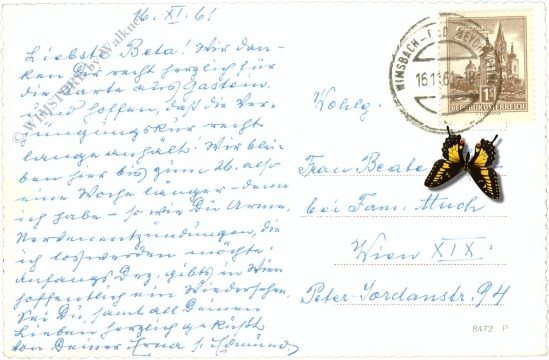 16. XI. 61
Liebste Beta! Wir dan-
ken Dir recht herzlich für
die Karte aus Gastein
und hoffen, daß die Ver-
jüngungskur recht
lange anhält! Wir blei-
ben hier bis zum 26. also
eine Woche länger - denn
ich habe - so wie Du Arme,
Nervenentzündungen, die
ich loswerden möchte.
Anfangs Dez. gibts in Wien
hoffentlich ein Wiedersehen.
Sei Du, samt all Deinen
Lieben herzlich geküßt
von Deiner Erna u. Edmund
© WIMSTORE by Walkner
WIMSBACH-BAD NEYDHARTING
16.11.61-18
1 S
REPUBLIK ÖSTERREICH
Wohlg.
Frau Beate
bei Fam. Much
Wien XIX.
Peter Jordanstr. 94
8472 P